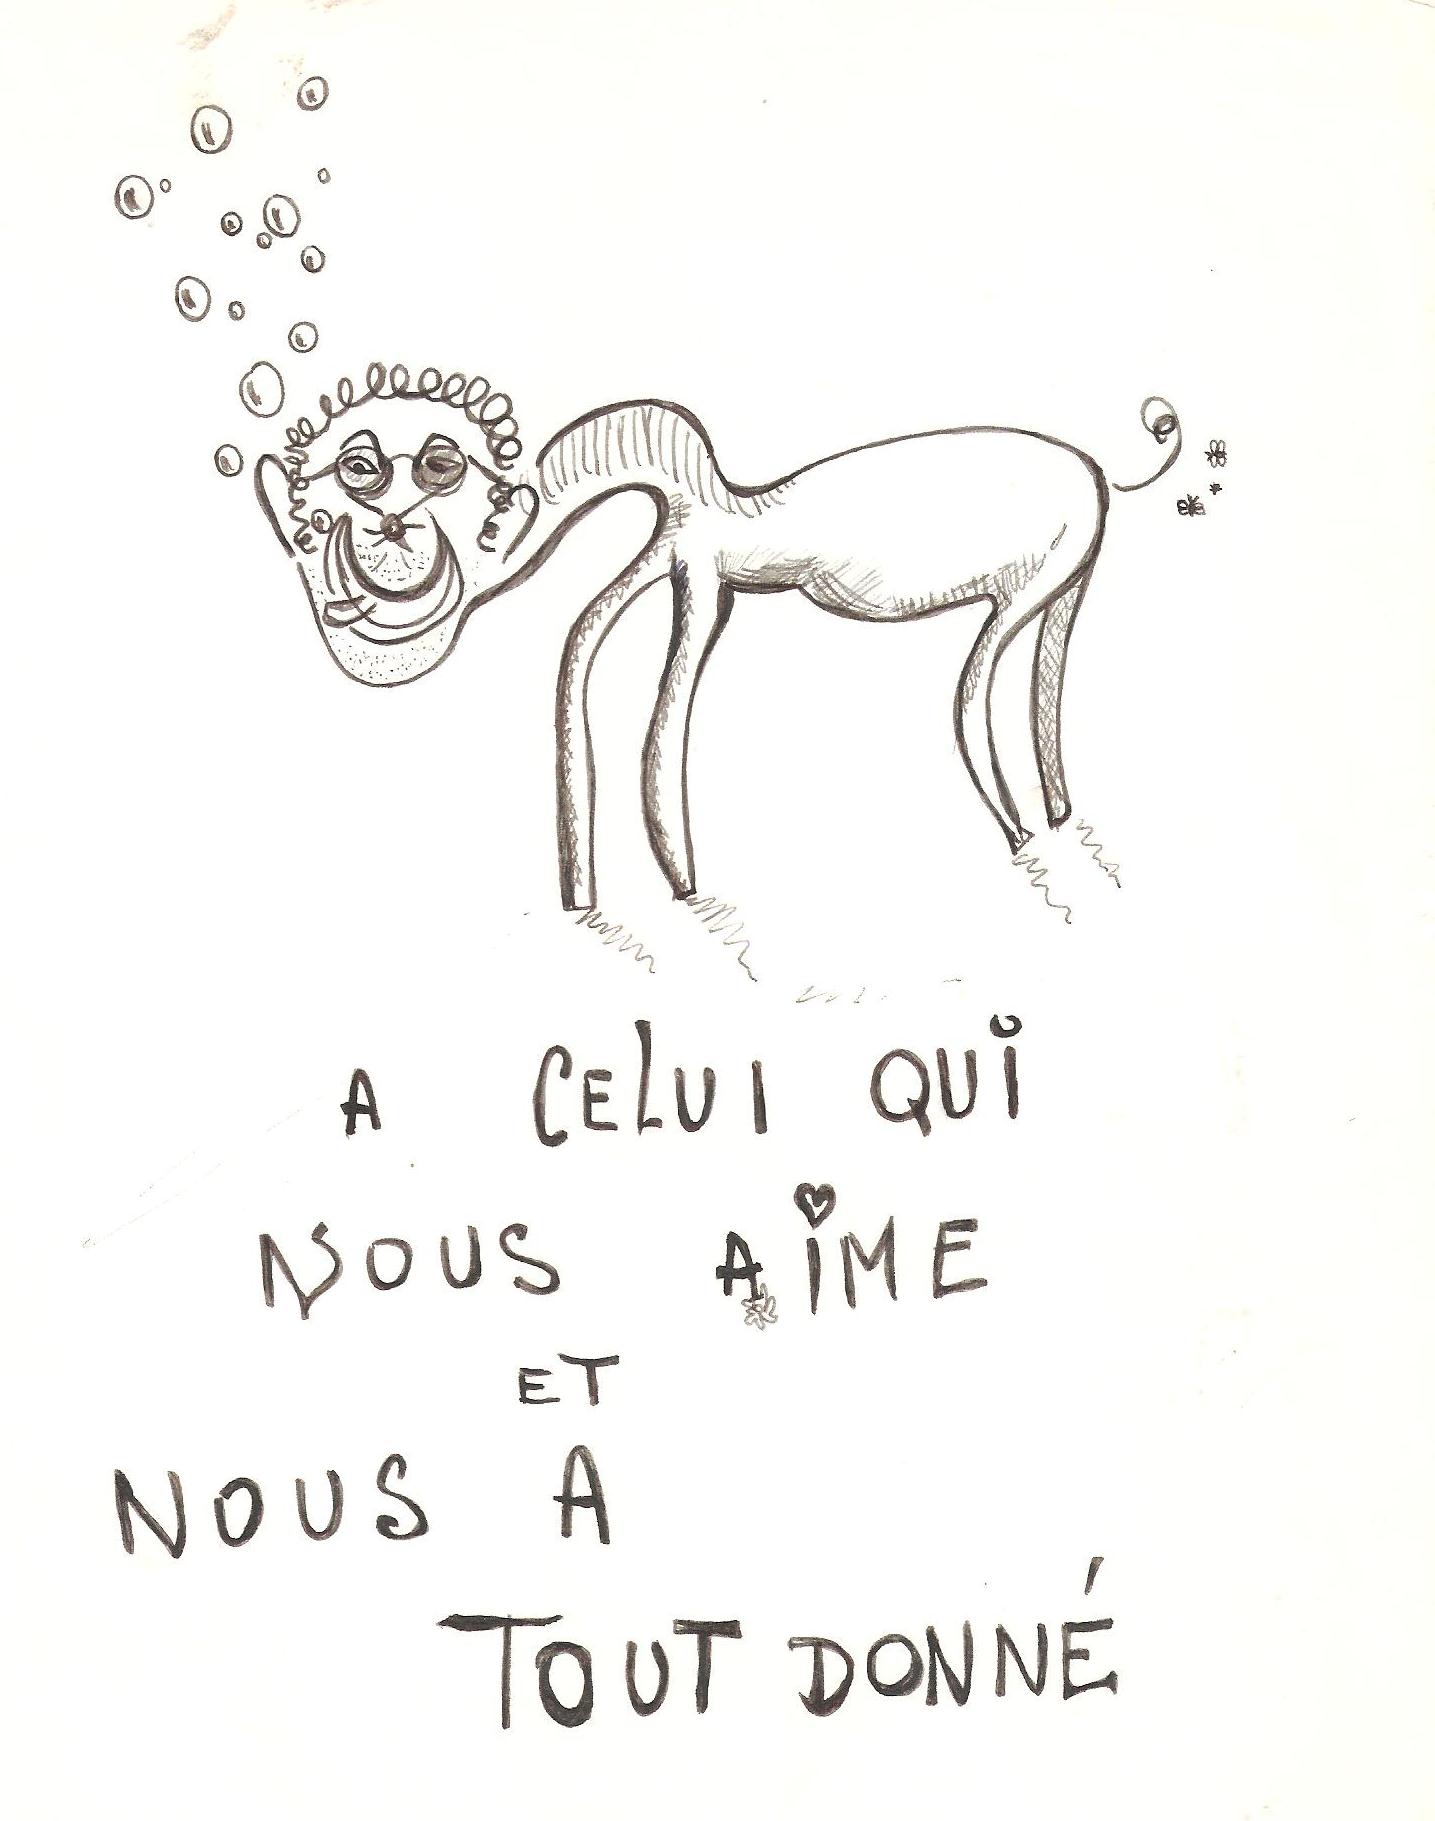 A CELUI QUI
NOUS AIME
ET
NOUS A
TOUT DONNÉ